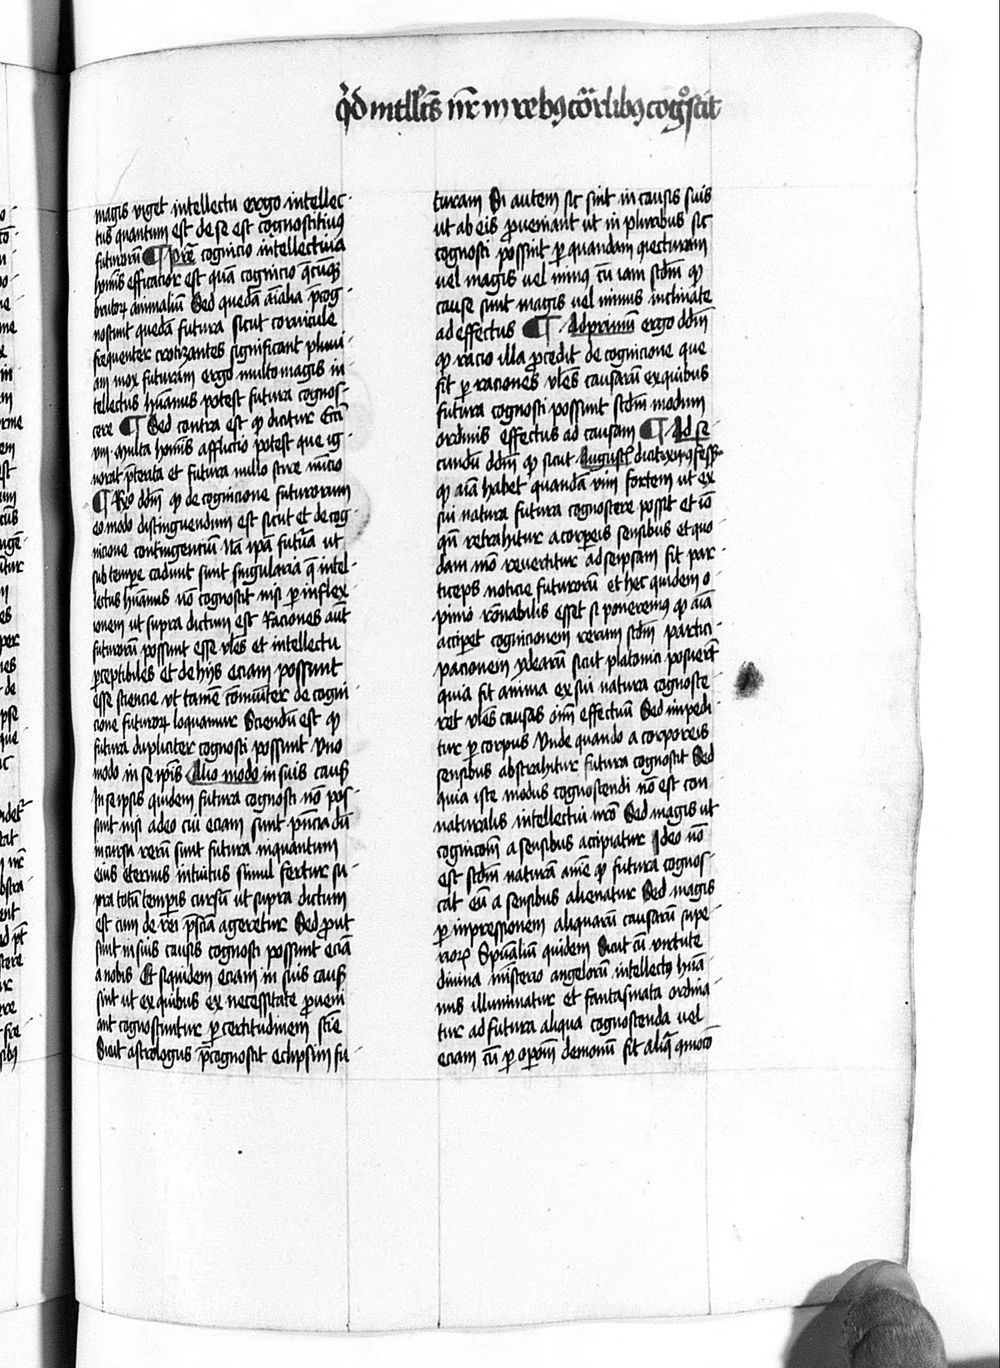 qd intllcts nr in rebus corlibus cognoscit
magis viget intellectu ergo intellec-
tus quantum est de se est cognoscitivus
futurorum ¶ Pre cognicio intellectiva
hominis efficacior est quam cognicio quecumque
brutorum animalium Sed quedam animalia precog-
noscunt quedam futura sicut cornicule
frequenter crocizantes significant pluvi-
am mox futuram ergo multo magis in-
tellectus humanus potest futura cognos-
cere ¶ Sed contra est quod dicitur Ecci
viii multa hominis afflictio potest que ig-
norat preterita et futura nullo scire nuncio
¶ Reo ddm quod de cognicione futurorum
eo modo distinguendum est sicut et de cog-
nicione contingentium Nam ipsa futura ut
sub tempore cadunt sunt singularia que intel-
lectus humanus non cognoscit nisi per inflex-
ionem ut supra dictum est Raciones aut
futurorum possunt esse vles et intellectu
perceptibiles et de hiis eciam possunt
esse sciencie ut tamen communiter de cogni-
cione futurorum loquamur Sciendum est quod
futura dupliciter cognosci possunt Uno
modo in se ipsis Alio modo in suis causis
In se ipsis quidem futura cognosci non pos-
sunt nisi a deo cui eciam sunt presencia dum
in cursu rerum sunt futura inquantum
eius eternus intuitus simul fertur su-
pra totum temporis cursum ut supra dictum
est cum de dei presciencia ageretur Sed prout
sunt in suis causis cognosci possunt eciam
a nobis Et siquidem eciam in suis causis
sint ut ex quibus ex necessitate proveni-
ant cognoscuntur per certitudinem scie
Sicut astrologus precognoscit eclipsim fu-
turam Si autem sic sint in causis suis
ut ab eis proveniant ut in pluribus sic
cognosci possunt per quandam coniecturam
vel magis vel minus cum iam scdm quod
cause sunt magis vel minus inclinate
ad effectus ¶ Ad primum ergo ddm
quod racio illa procedit de cognicione que
fit per raciones vles causarum ex quibus
futura cognosci possunt scdm modum
ordinis effectus ad causam ¶ Ad se-
cundum ddm quod sicut Augustinus dicit
quod anima habet quandam vim sortem ut ex
sui natura futura cognoscere possit et ideo
quando retrahitur a corporeis sensibus et quo-
dam modo revertitur ad seipsam fit par-
ticeps noticie futurorum et hec quidem o-
pinio rationabilis esset si poneremus quod anima
acciperet cognicionem rerum scdm partici-
pacionem ydearum sicut platonici posuerunt
quia sic anima ex sui natura cognosce-
ret vles causas omnium effectuum Sed impedi-
tur per corpus Unde quando a corporeis
sensibus abstrahitur futura cognoscit Sed
quia iste modus cognoscendi non est con-
naturalis intellectui nostro Sed magis ut
cognicionem a sensibus accipiatur Ideo non
est scdm naturam anime quod futura cognos-
cat cum a sensibus alienatur Sed magis
per inpressionem aliquarum causarum supe-
riorum Spualium quidem Sicut cum virtute
divina ministerio angelorum intellectus huma-
nus illuminatur et fantasmata ordina-
tur ad futura aliqua cognoscenda vel
eciam cum per oponem demonum fit aliqua quomodo